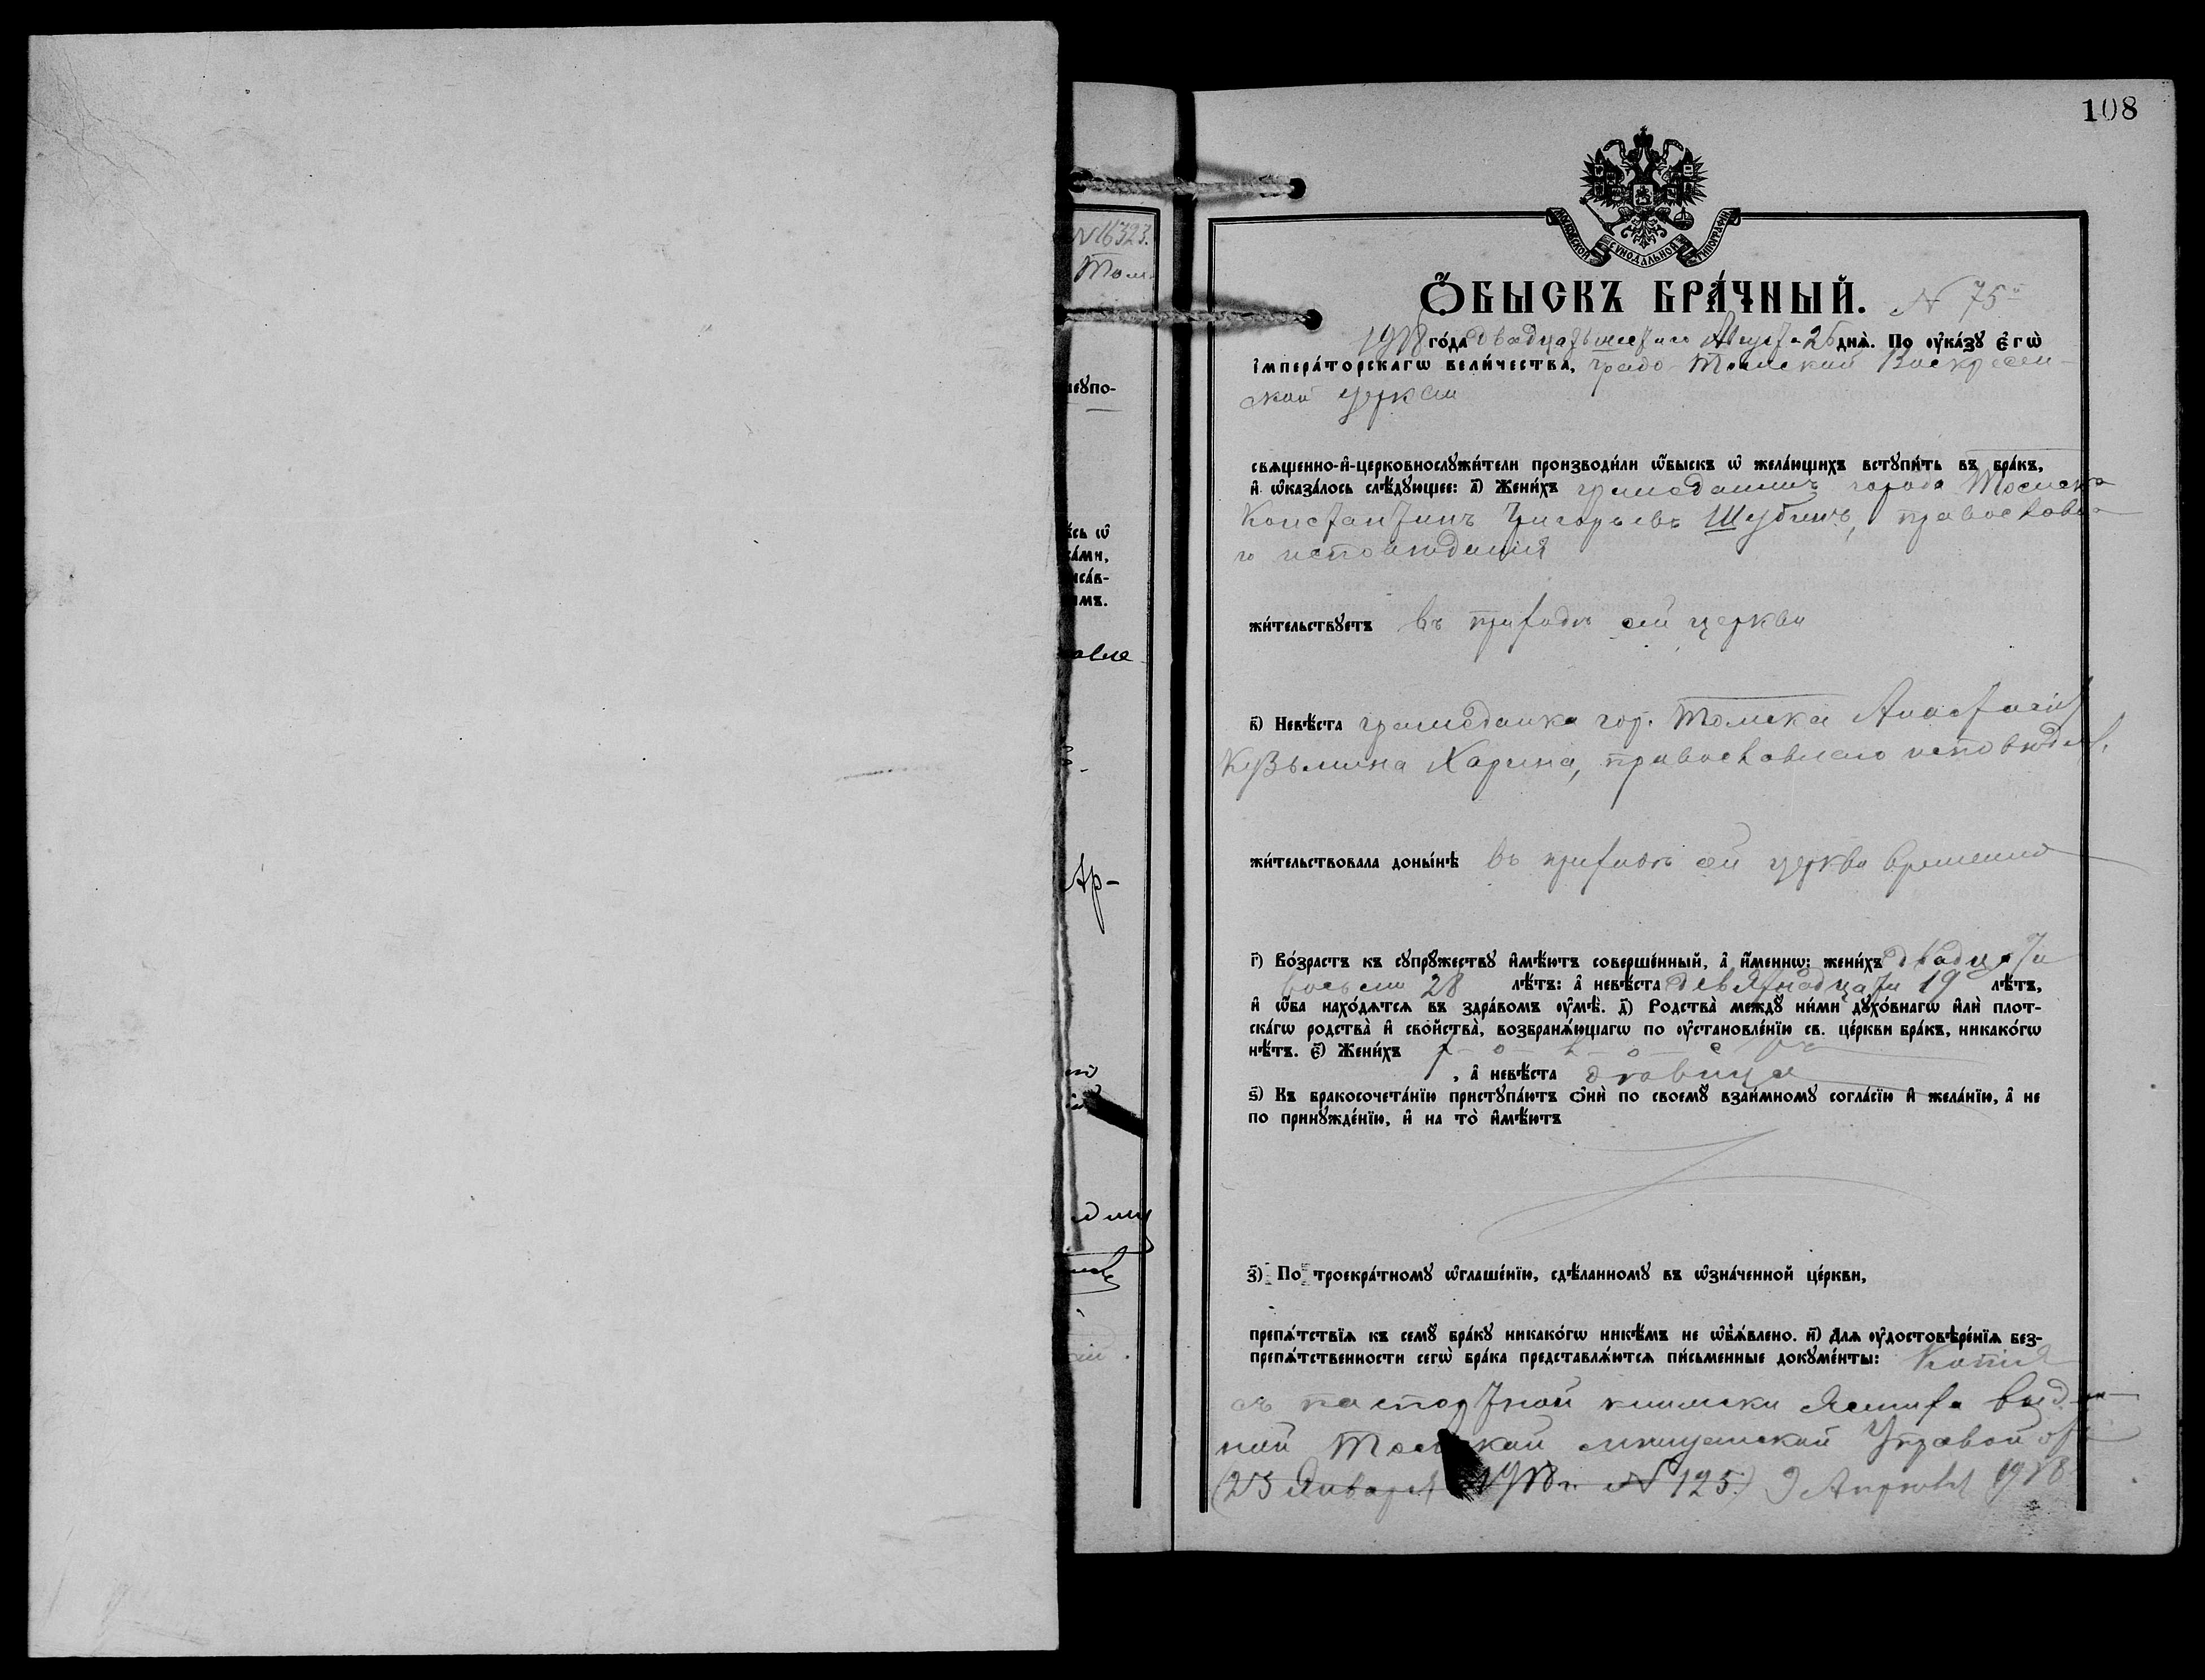 108
МОСКОВСКОЙ СѴНОДАЛЬНОЙ ТИПОГРАФІИ
N 16323.
Том
ОБЫСКЪ БРАЧНЫЙ. N 75й
1918 го́да двадцать шестаго Августа 26 днѧ̀. По ᲂу҆ка́зꙋ є҆гѡ̀
і҆мпера́торскагѡ вели́чества, градо-Томской Воскресен-
ской церкви
сващенно-и҆-церковнослꙋжи́тели производи́ли ѡ҆́быскъ ѡ҆ жела́ющихъ встꙋпи́ть въ бра́къ,
и҆ ѡ҆каза́лось слѣ́дꙋющее: а҃) Жени́хъ гражданинъ города Томска
Константинъ Григорьевъ Шубинъ, православна
го исповѣданія
жи́тельствꙋетъ въ приходѣ сей церкви
в҃) Невѣ́ста гражданка гор. Томска Анастасія
Кузьмина Харина, православнаго исповѣдан.
жи́тельствовала доны́нѣ въ приходѣ сей церкви временно
г҃) Во́зрастъ къ сꙋпрꙋ́жествꙋ и҆мѣ́ютъ соверше́нный, а҆ и҆́меннѡ: жени́хъ двадцати
восьми 28 лѣ́тъ: а҆ невѣ́ста девятнадцати 19 лѣ́тъ,
и҆ ѻ҆́ба нахо́дѧтсѧ въ здра́вомъ ᲂу҆мѣ̀. д҃) Родства̀ междꙋ̀ ни́ми дꙋхо́внагѡ и҆лѝ плот-
ска́гѡ родства̀ и҆ сво́йства̀, возбранѧ́ющагѡ по ᲂу҆становле́нїю св. це́ркви бра́къ, никако́гѡ
нѣ́тъ. є҃) Жени́хъ х-о-л-о-с-тъ
, а҆ невѣ́ста дѣвица
ѕ҃) Къ бракосочета́нїю пристꙋпа́ютъ ѻ҆нѝ по своемꙋ̀ взаи́мномꙋ согла́сїю и҆ жела́нїю, а҆ не
по принꙋжде́нїю, и҆ на то̀ и҆мѣ́ютъ
з҃) По троекра́тномꙋ ѡ҆глаше́нїю, сдѣ́ланномꙋ въ ѡ҆зна́ченной це́ркви,
препѧ́тствїѧ къ семꙋ̀ бра́кꙋ никако́гѡ никѣ́мъ не ѡ҆б̾ѧ́влено. и҃) Длѧ ᲂу҆достовѣре́нїѧ без-
препѧ́тственности сегѡ̀ бра́ка представлѧ́ютсѧ пи́сьменные докꙋме́нты: Копія
съ паспортной книжки жениха выдан
ной Томской мѣщанской Управой от
(23 Января 1918 г. N 125.) 9 Апрѣля 1918